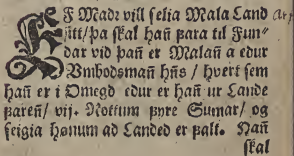 EF Madr vill selia Mala Land
sitt/ þa skal hañ þara til Fun⸗
dar vid þañ er Malañ a edur
Vmbodsmañ hñs / hvert sem
hañ er i Omegd edur er hañ ur Lande
þareñ/ vij. Nottum þyre Sumar/ og
seigia hønum ad Landed er þalt. Nañ
skal